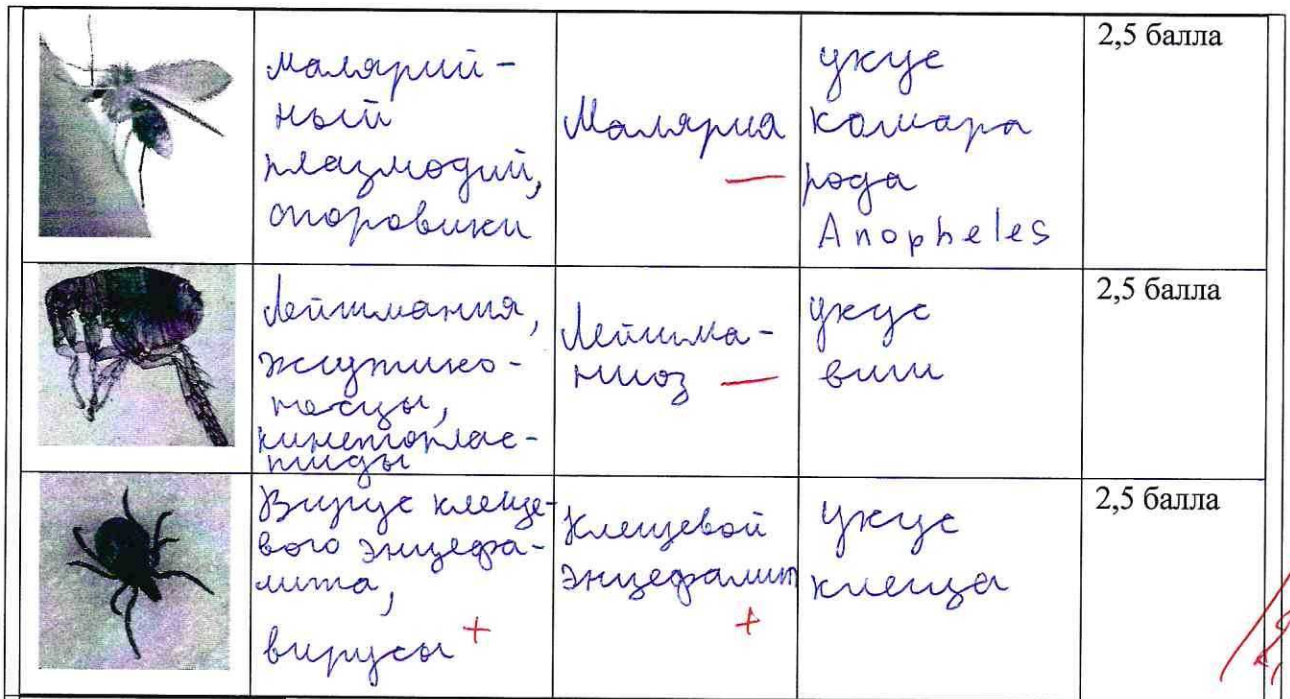 малярий-
ный
плазмодий,
споровики
Малярия
—
укус
комара
рода
Anopheles
2,5 балла
Лейшмания,
жгутико-
носцы,
кинетоплас-
тиды
Лейшма-
ниоз —
укус
вши
2,5 балла
Вирус клеще-
вого энцефа-
лита,
вирусы +
Клещевой
энцефалит
+
укус
клеща
2,5 балла